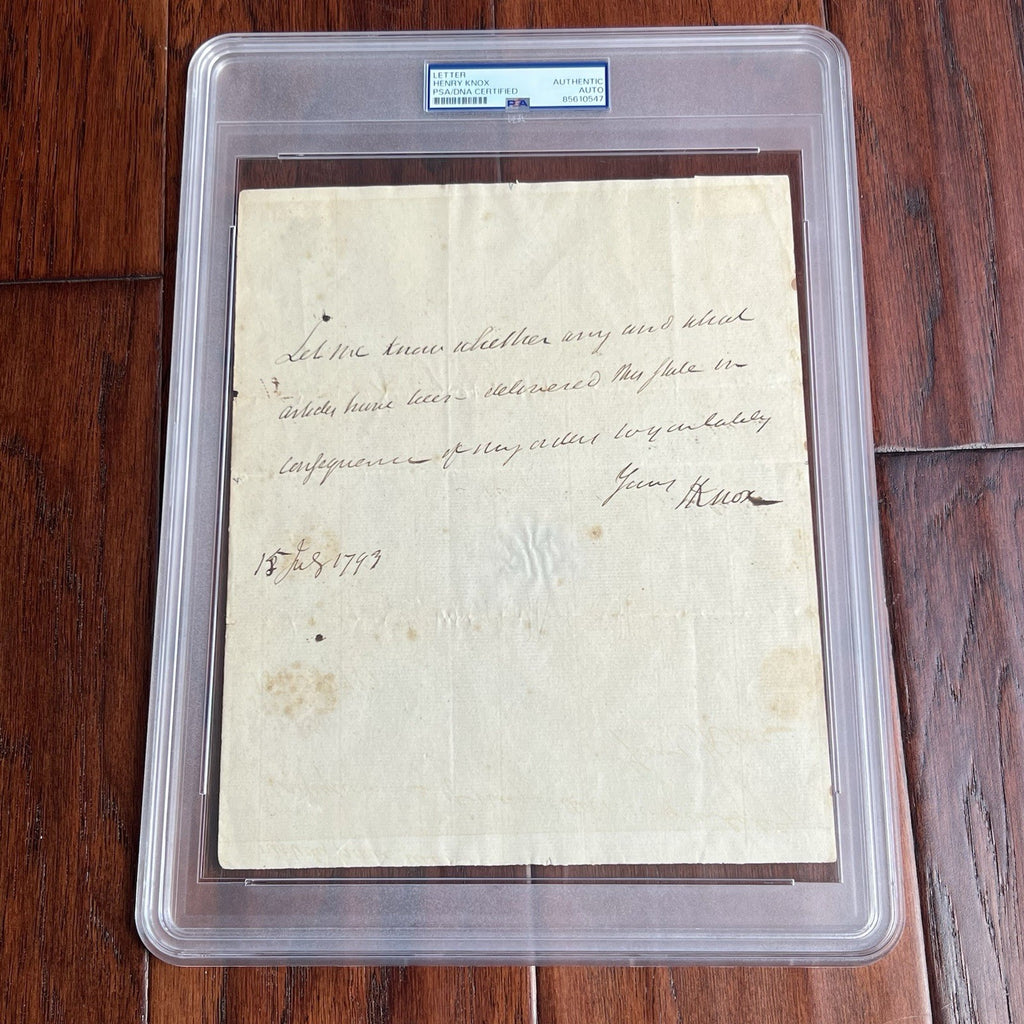 LETTER
HENRY KNOX
PSA/DNA CERTIFIED
AUTHENTIC
AUTO
85610547
PSA
Let me know whether any and what
articles have been delivered this State in
consequence of my orders
Yours HKnox
15 July 1793